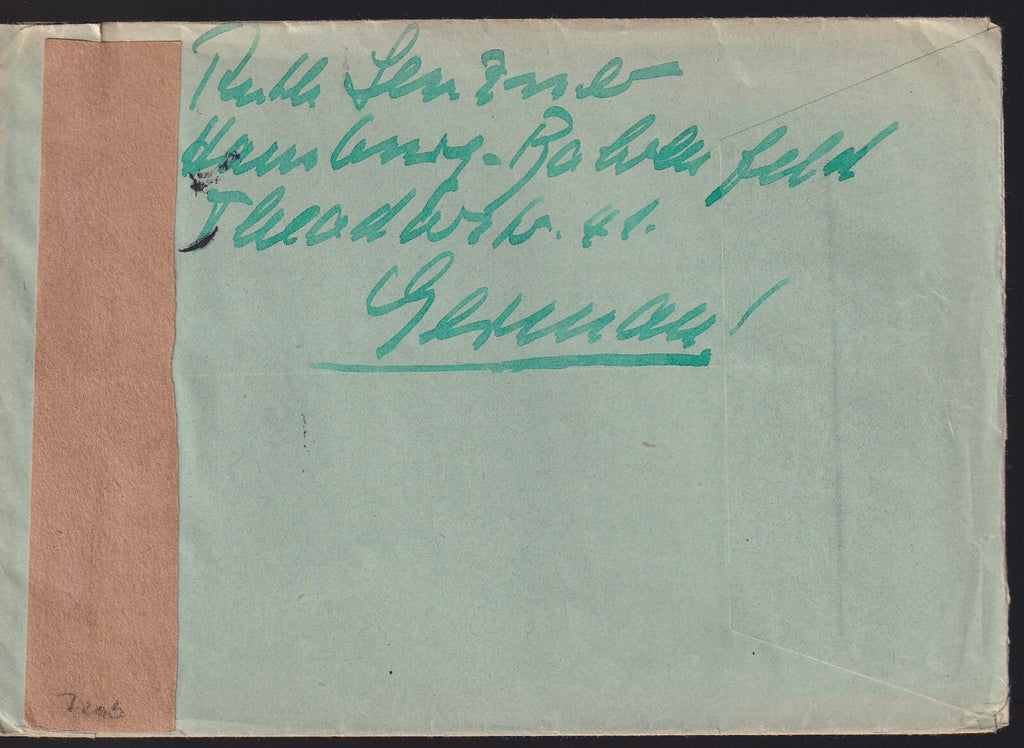 Ruth Lenzner
Hamburg-Bahrenfeld
Theodorstr. 41.
Germany